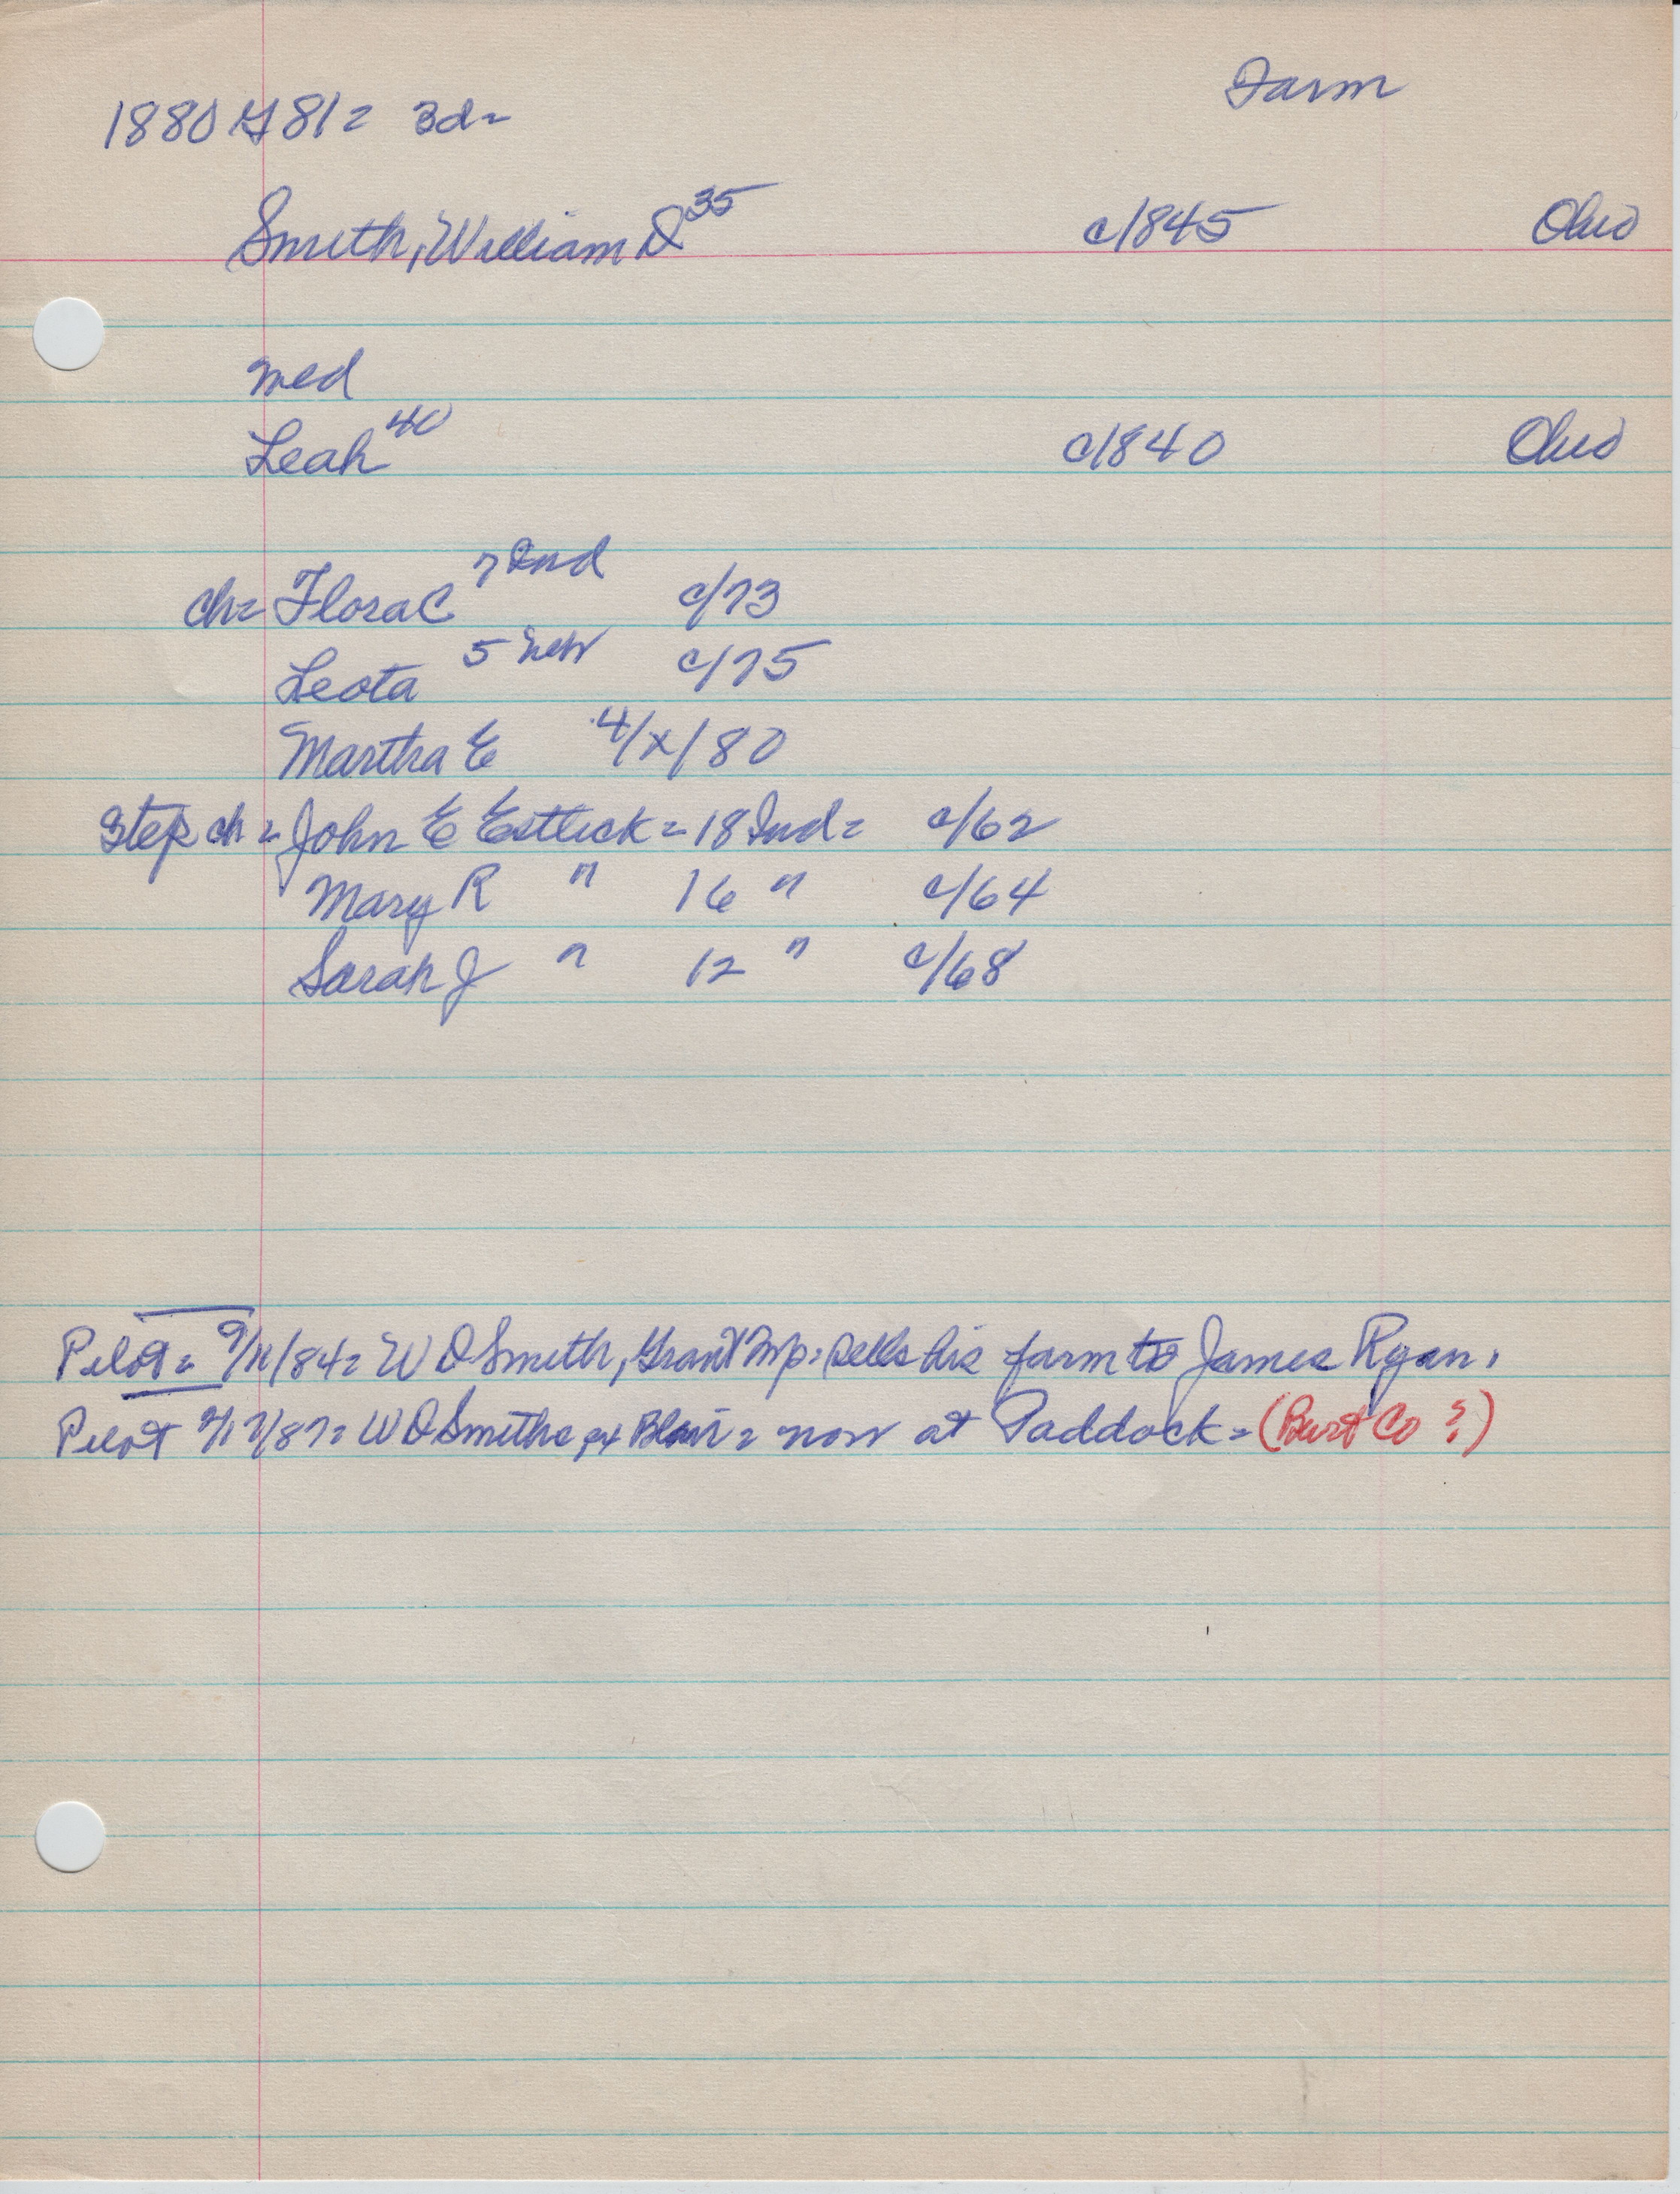 Farm
1880 G 81 = 3d =
Smith, William D 35 c/1845 Ohio
med
Leah 40 c/1840 Ohio
ch = Flora C 7 Ind c/73
Leota 5 c/75
Martha E 4/x/80
Step ch = John E Estlick = 18 Ind = c/62
Mary R " 16 " c/64
Sarah J " 12 " c/68
Pilot = 9/11/84 = W D Smith, Grant Twp. sells his farm to James Ryan.
Pilot /87 = W D Smiths, ex Blair = now at Paddock = (Burt Co ?)